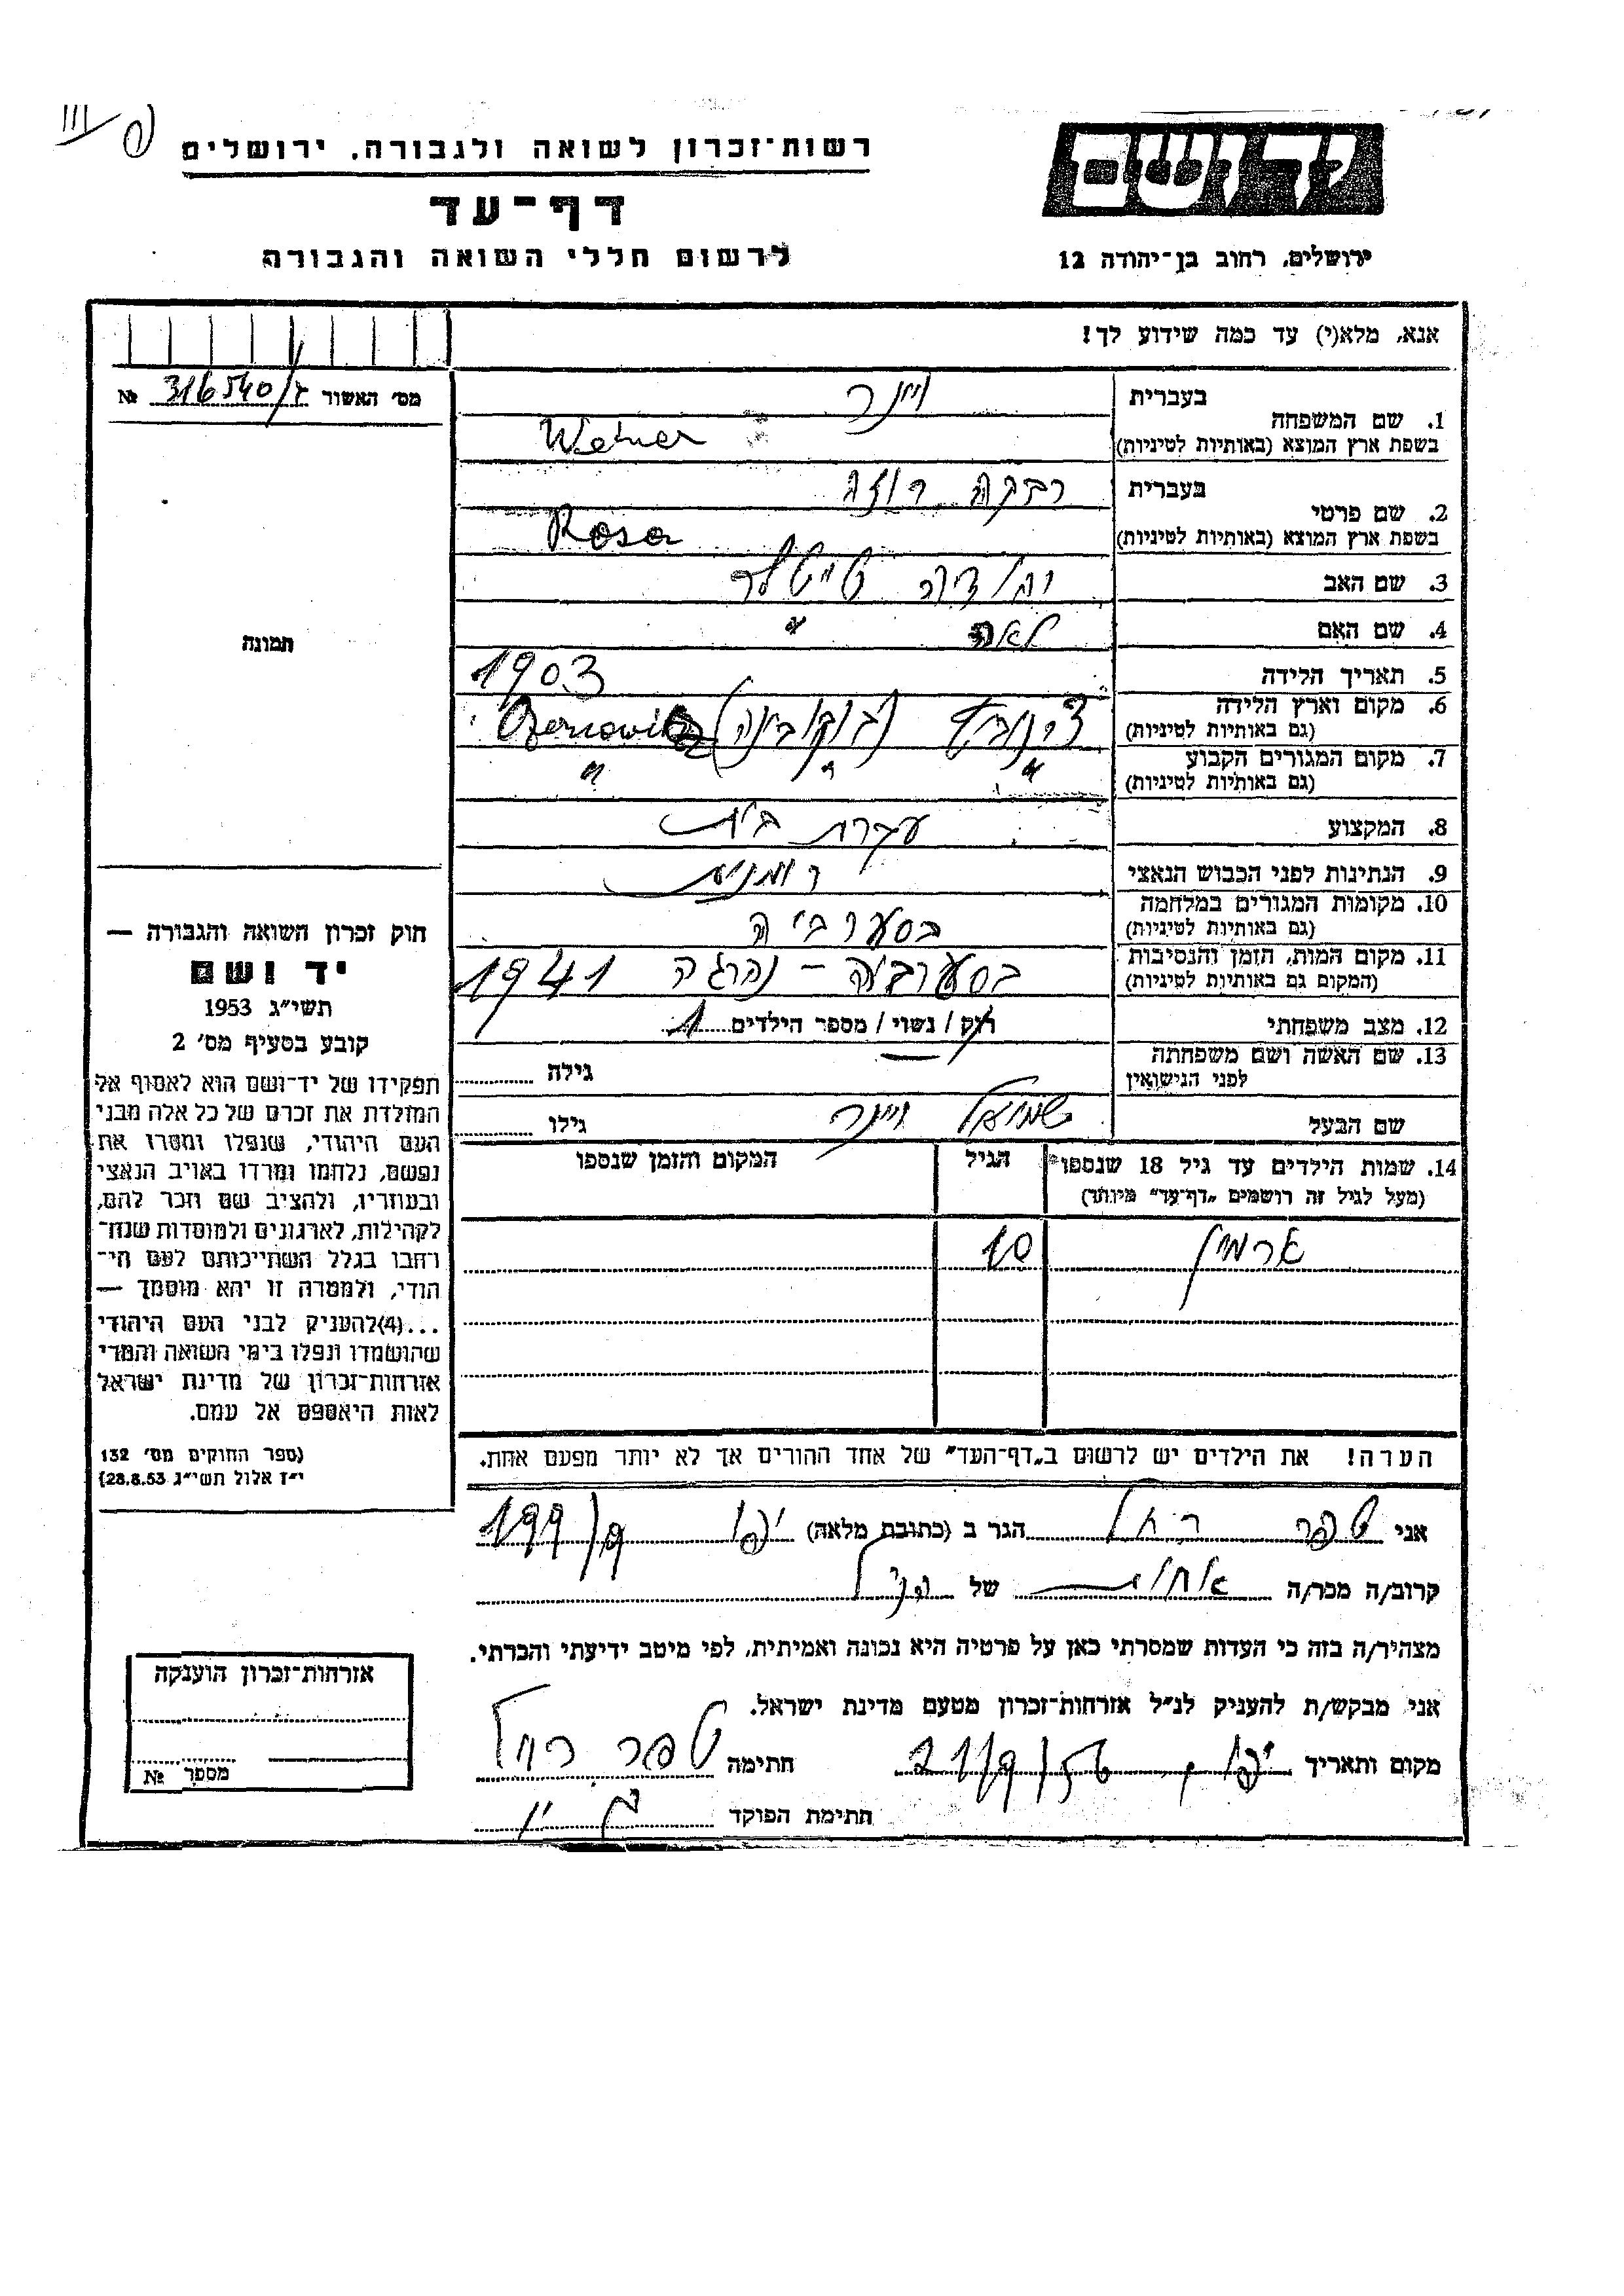 רשות־זכרון לשואה ולגבורה, ירושלים
דף־עד
לרשום חללי השואה והגבורה
יד ושם
ירושלים, רחוב בן־יהודה 12
אנא, מלא(י) עד כמה שידוע לך!
מס׳ האשור № 316540/
1. שם המשפחה בעברית וינר
בשפת ארץ המוצא (באותיות לטיניות) Weiner
2. שם פרטי בעברית רבקה רוזה
בשפת ארץ המוצא (באותיות לטיניות) Rosa
3. שם האב
4. שם האם לאה "
5. תאריך הלידה 1903
6. מקום וארץ הלידה (גם באותיות לטיניות) (בוקובינה) Czernowitz
7. מקום המגורים הקבוע (גם באותיות לטיניות) " " "
8. המקצוע עקרת בית
9. הנתינות לפני הכבוש הנאצי רומנית
10. מקומות המגורים במלחמה (גם באותיות לטיניות) בסרביה
11. מקום המות, הזמן והנסיבות (המקום גם באותיות לטיניות) בסרביה – נהרגה 1941
12. מצב משפחתי רוק / נשוי / מספר הילדים 1
13. שם האשה ושם משפחתה לפני הנישואין גילה
שם הבעל שמואל וינר גילו
14. שמות הילדים עד גיל 18 שנספו הגיל המקום והזמן שנספו
(מעל לגיל זה רושמים „דף־עד״ מיוחד)
ארמין 10
הערה! את הילדים יש לרשום ב„דף־העד״ של אחד ההורים אך לא יותר מפעם אחת.
אני רחל הגר ב (כתובת מלאה) יפו 199
קרוב/ה מכר/ה אחות של הנ״ל
מצהיר/ה בזה כי העדות שמסרתי כאן על פרטיה היא נכונה ואמיתית, לפי מיטב ידיעתי והכרתי.
אני מבקש/ת להעניק לנ״ל אזרחות־זכרון מטעם מדינת ישראל.
מקום ותאריך יפו 21/9/ חתימה רחל
חתימת הפוקד
תמונה
חוק זכרון השואה והגבורה —
יד ושם
תשי״ג 1953
קובע בסעיף מס׳ 2
תפקידו של יד־ושם הוא לאסוף אל
המולדת את זכרם של כל אלה מבני
העם היהודי, שנפלו ומסרו את
נפשם, נלחמו ומרדו באויב הנאצי
ובעוזריו, ולהציב שם וזכר להם,
לקהילות, לארגונים ולמוסדות שנח־
רחבו בגלל השתייכותם לעם הי־
הודי, ולמטרה זו יהא מוסמך —
...(4)להעניק לבני העם היהודי
שהושמדו ונפלו בימי השואה והמרי
אזרחות־זכרון של מדינת ישראל
לאות היאספם אל עמם.
(ספר החוקים מס׳ 132
י״ז אלול תשי״ג 28.8.53)
אזרחות־זכרון הוענקה
מספר №